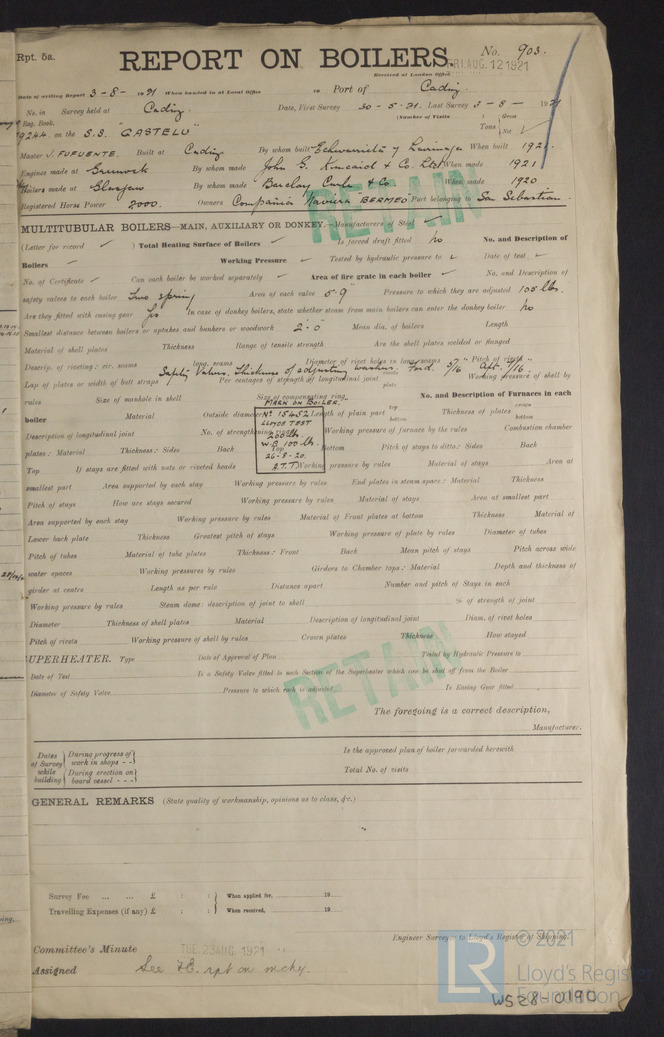 Rpt. 5a.
REPORT ON BOILERS.
No. 903.
Received at London Office FRI. AUG. 12 1921
Date of writing Report 3-8- 1921 When handed in at Local Office 19 Port of Cadiz
No. in Survey held at Cadiz Date, First Survey 30-5-21. Last Survey 3-8- 1921
Reg. Book. (Number of Visits ) Gross
19244 on the S.S. "GASTELU" Tons Net
Master J. FUFUENTE. Built at Cadiz By whom built Echevarrieta y Larrinaga When built 1921
Engines made at Greenock By whom made John G. Kincaid & Co. Ltd When made 1921
Boilers made at Glasgow By whom made Barclay Curle & Co When made 1920
Registered Horse Power 2000. Owners Compañia Naviera BERMEO Port belonging to San Sebastian.
RETAIN
MULTITUBULAR BOILERS—MAIN, AUXILIARY OR DONKEY.—Manufacturers of Steel ✓
(Letter for record ✓ ) Total Heating Surface of Boilers ✓ Is forced draft fitted No No. and Description of
Boilers ✓ Working Pressure ✓ Tested by hydraulic pressure to ✓ Date of test ✓
No. of Certificate ✓ Can each boiler be worked separately ✓ Area of fire grate in each boiler ✓ No. and Description of
safety valves to each boiler Two spring Area of each valve 5·9" Pressure to which they are adjusted 105 lbs.
Are they fitted with easing gear Yes In case of donkey boilers, state whether steam from main boilers can enter the donkey boiler No
Smallest distance between boilers or uptakes and bunkers or woodwork 2'-0" Mean dia. of boilers Length
Material of shell plates Thickness Range of tensile strength Are the shell plates welded or flanged
Descrip. of riveting: cir. seams long. seams Diameter of rivet holes in long. seams Pitch of rivets
Safety Valves. Thickness of adjusting washers. Ford. 5/16" Aft. 7/16"
Lap of plates or width of butt straps Per centages of strength of longitudinal joint plate Working pressure of shell by
rules Size of manhole in shell Size of compensating ring No. and Description of Furnaces in each
MARK ON BOILER.
boiler Material Outside diameter Length of plain part top bottom Thickness of plates crown bottom
Nº 15452
LLOYDS TEST
200 lbs.
W.P. 100 lbs.
26-8-20.
J.T.T.
Description of longitudinal joint No. of strengthening rings Working pressure of furnace by the rules Combustion chamber
plates: Material Thickness: Sides Back Top Bottom Pitch of stays to ditto: Sides Back
Top If stays are fitted with nuts or riveted heads Working pressure by rules Material of stays Area at
smallest part Area supported by each stay Working pressure by rules End plates in steam space: Material Thickness
Pitch of stays How are stays secured Working pressure by rules Material of stays Area at smallest part
Area supported by each stay Working pressure by rules Material of Front plates at bottom Thickness Material of
Lower back plate Thickness Greatest pitch of stays Working pressure of plate by rules Diameter of tubes
Pitch of tubes Material of tube plates Thickness: Front Back Mean pitch of stays Pitch across wide
water spaces Working pressures by rules Girders to Chamber tops: Material Depth and thickness of
girder at centre Length as per rule Distance apart Number and pitch of Stays in each
Working pressure by rules Steam dome: description of joint to shell % of strength of joint
Diameter Thickness of shell plates Material Description of longitudinal joint Diam. of rivet holes
Pitch of rivets Working pressure of shell by rules Crown plates Thickness How stayed
UPERHEATER. Type Date of Approval of Plan Tested by Hydraulic Pressure to
Date of Test Is a Safety Valve fitted to each Section of the Superheater which can be shut off from the Boiler
Diameter of Safety Valve Pressure to which each is adjusted Is Easing Gear fitted
RETAIN
The foregoing is a correct description,
Manufacturer.
Dates of Survey while building During progress of work in shops - - Is the approved plan of boiler forwarded herewith
During erection on board vessel - - - Total No. of visits
GENERAL REMARKS (State quality of workmanship, opinions as to class, &c.)
Survey Fee ... ... £ : : When applied for, 19
Travelling Expenses (if any) £ : : When received, 19
Engineer Surveyor to Lloyd's Register of Shipping.
Committee's Minute TUE. 23 AUG. 1921
Assigned See F.E. rpt on mchy.
LR
© 2021
Lloyd's Register
Foundation
WS28-0190